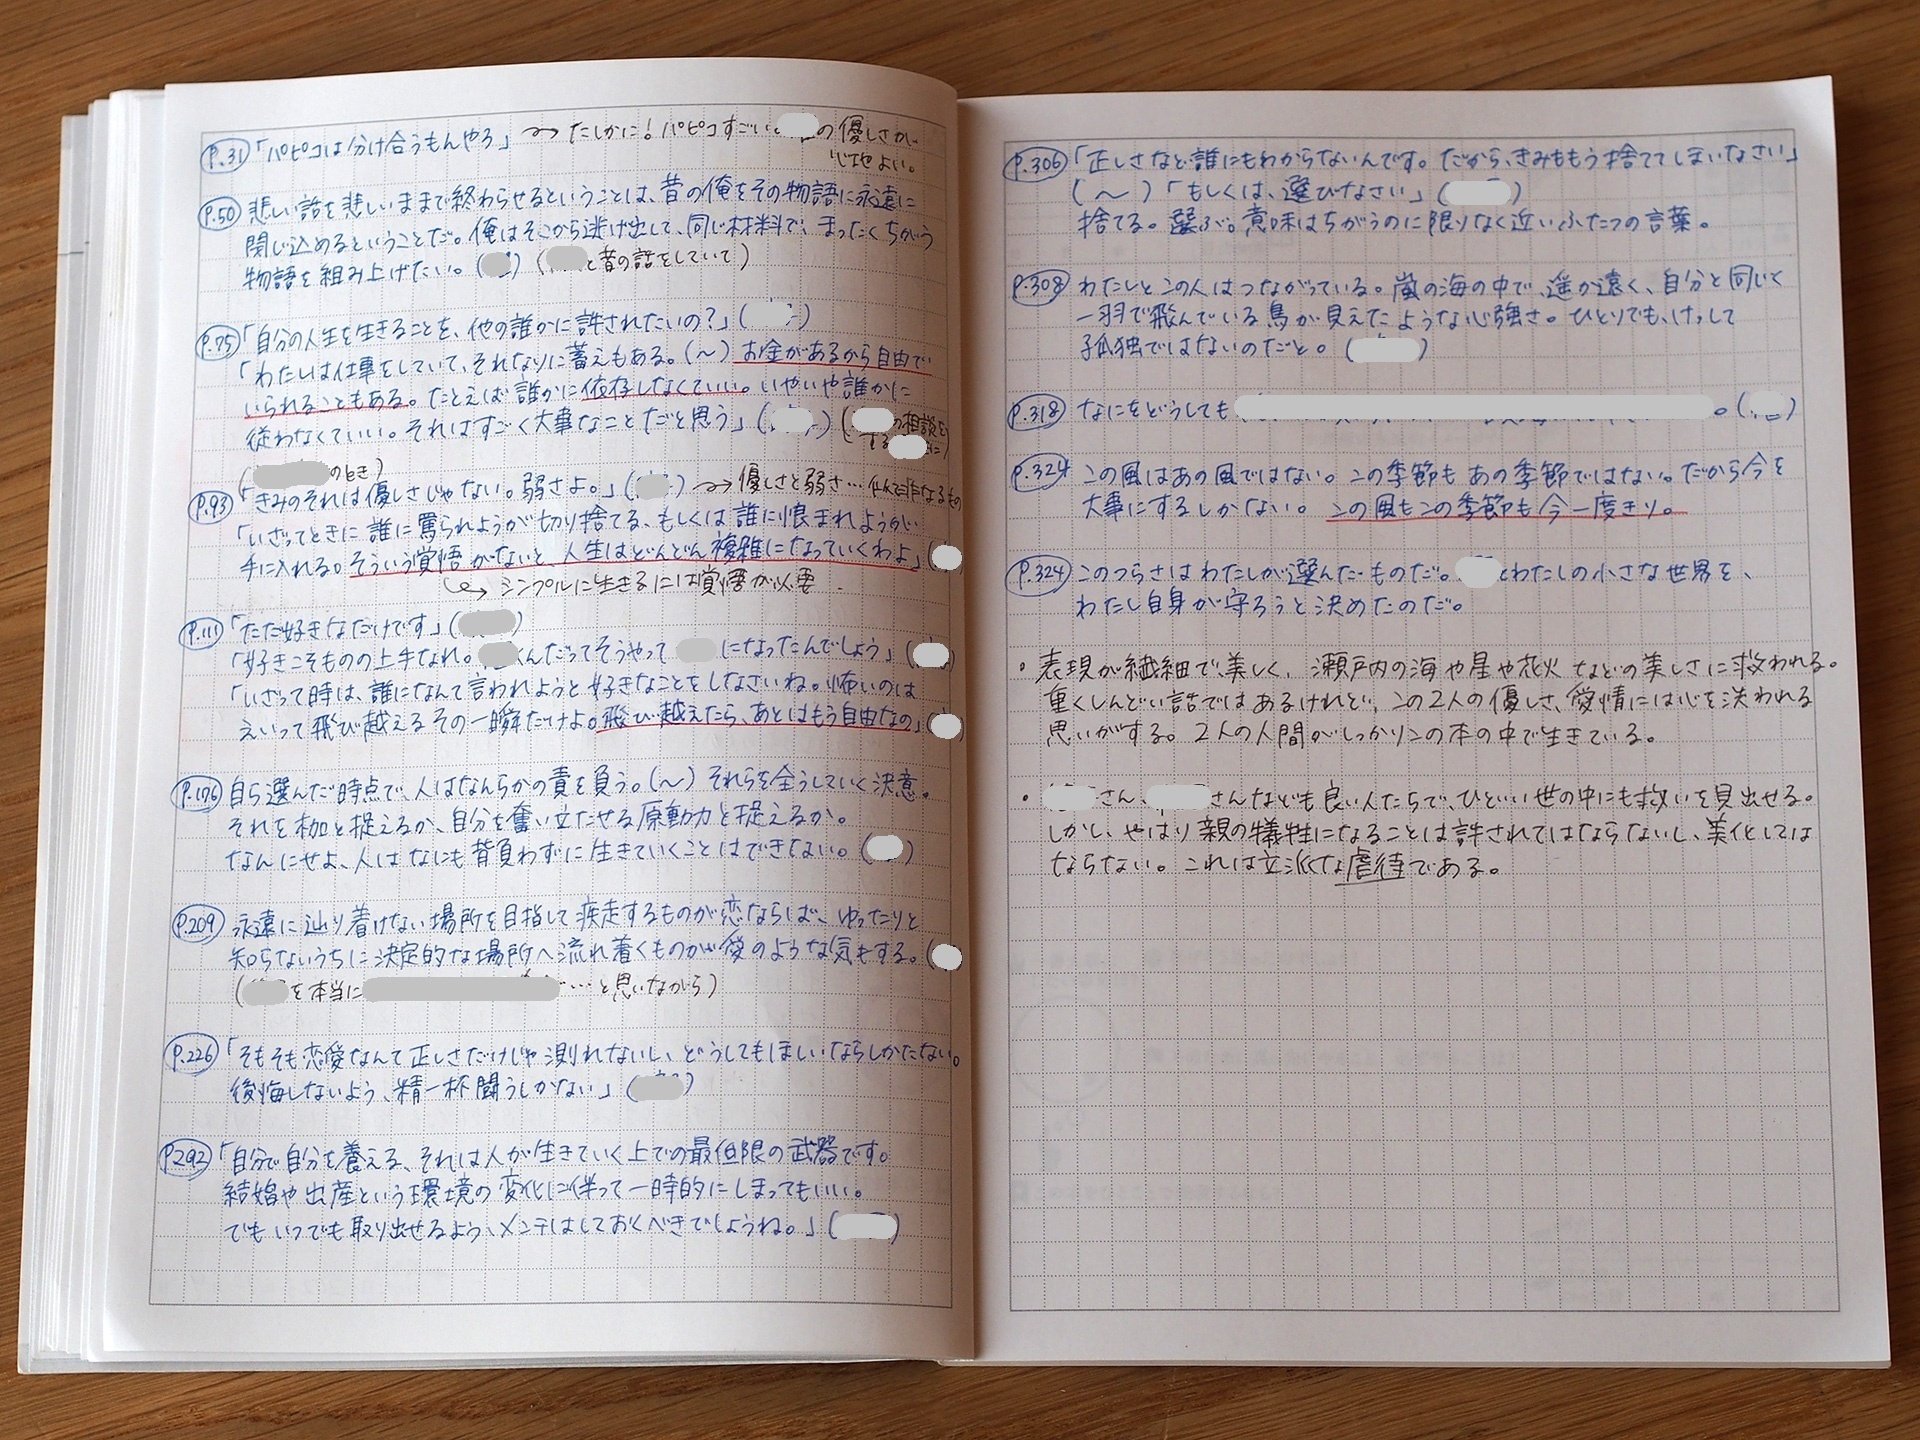 P.31 「パピコは分け合うもんやろ」 → たしかに！パピコすごい の優しさが
心地よい。
P.50 悲しい話を悲しいままで終わらせるということは、昔の俺をその物語に永遠に
閉じ込めるということだ。俺はそこから逃げ出して、同じ材料で、まったくちがう
物語を組み上げたい。( ) ( と昔の話をしていて)
P.75 「自分の人生を生きることを、他の誰かに許されたいの？」( )
「わたしは仕事をしていて、それなりに蓄えもある。(〜) お金があるから自由で
いられることもある。たとえば誰かに依存しなくていい。いやいや誰かに
従わなくていい。それはすごく大事なことだと思う」( ) ( の相談を
する に)
( のとき)
P.93 「きみのそれは優しさじゃない。弱さよ。」( ) → 優しさと弱さ…似て非なるもの
「いざってときに誰に罵られようが切り捨てる、もしくは誰に恨まれようが
手に入れる。そういう覚悟がないと、人生はどんどん複雑になっていくわよ」(
→ シンプルに生きるには覚悟が必要.
P.111 「ただ好きなだけです」( )
「好きこそものの上手なれ。 くんだってそうやって になったんでしょう」( )
「いざって時は、誰になんて言われようと好きなことをしなさいね。怖いのは
えいって飛び越えるその一瞬だけよ。飛び越えたら、あとはもう自由なの」( )
P.176 自ら選んだ時点で、人はなんらかの責を負う。(〜) それらを全うしていく決意。
それを枷と捉えるか、自分を奮い立たせる原動力と捉えるか。
なんにせよ、人はなにも背負わずに生きていくことはできない。( )
P.209 永遠に辿り着けない場所を目指して疾走するものが恋ならば、ゆったりと
知らないうちに決定的な場所へ流れ着くものが愛のような気もする。(
( を本当に …と思いながら)
P.226 「そもそも恋愛なんて正しさだけじゃ測れないし、どうしてもほしいならしかたない。
後悔しないよう、精一杯闘うしかない」( )
P.292 「自分で自分を養える、それは人が生きていく上での最低限の武器です。
結婚や出産という環境の変化に伴って一時的にしまってもいい。
でもいつでも取り出せるよう、メンテはしておくべきでしょうね。」( )
P.306 「正しさなど誰にもわからないんです。だから、きみももう捨ててしまいなさい」
(〜)「もしくは、選びなさい」( )
捨てる。選ぶ。意味はちがうのに限りなく近いふたつの言葉。
P.308 わたしとこの人はつながっている。嵐の海の中で、遥か遠く、自分と同じく
一羽で飛んでいる鳥が見えたような心強さ。ひとりでも、けっして
孤独ではないのだと。( )
P.318 なにをどうしても 。( )
P.324 この風はあの風ではない。この季節もあの季節ではない。だから今を
大事にするしかない。この風もこの季節も今一度きり。
P.324 このつらさはわたしが選んだものだ。 とわたしの小さな世界を、
わたし自身が守ろうと決めたのだ。
・表現が繊細で、美しく、瀬戸内の海や星や花火などの美しさに救われる。
重くしんどい話ではあるけれど、この2人の優しさ、愛情には心を洗われる
思いがする。2人の人間がしっかりこの本の中で生きている。
・ さん、 さんなども良い人たちで、ひどい世の中にも救いを見出せる。
しかし、やはり親の犠牲になることは許されてはならないし、美化しては
ならない。これは立派な虐待である。